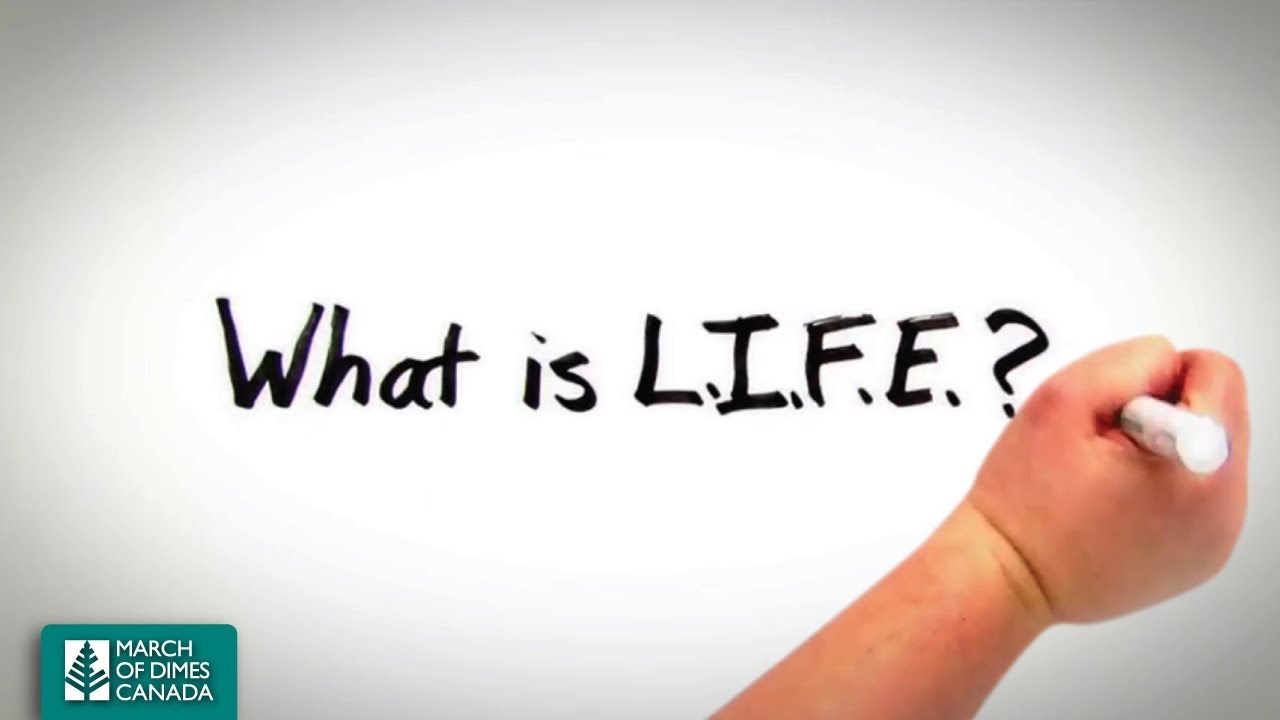 What is L.I.F.E.?
MARCH
OF DIMES
CANADA